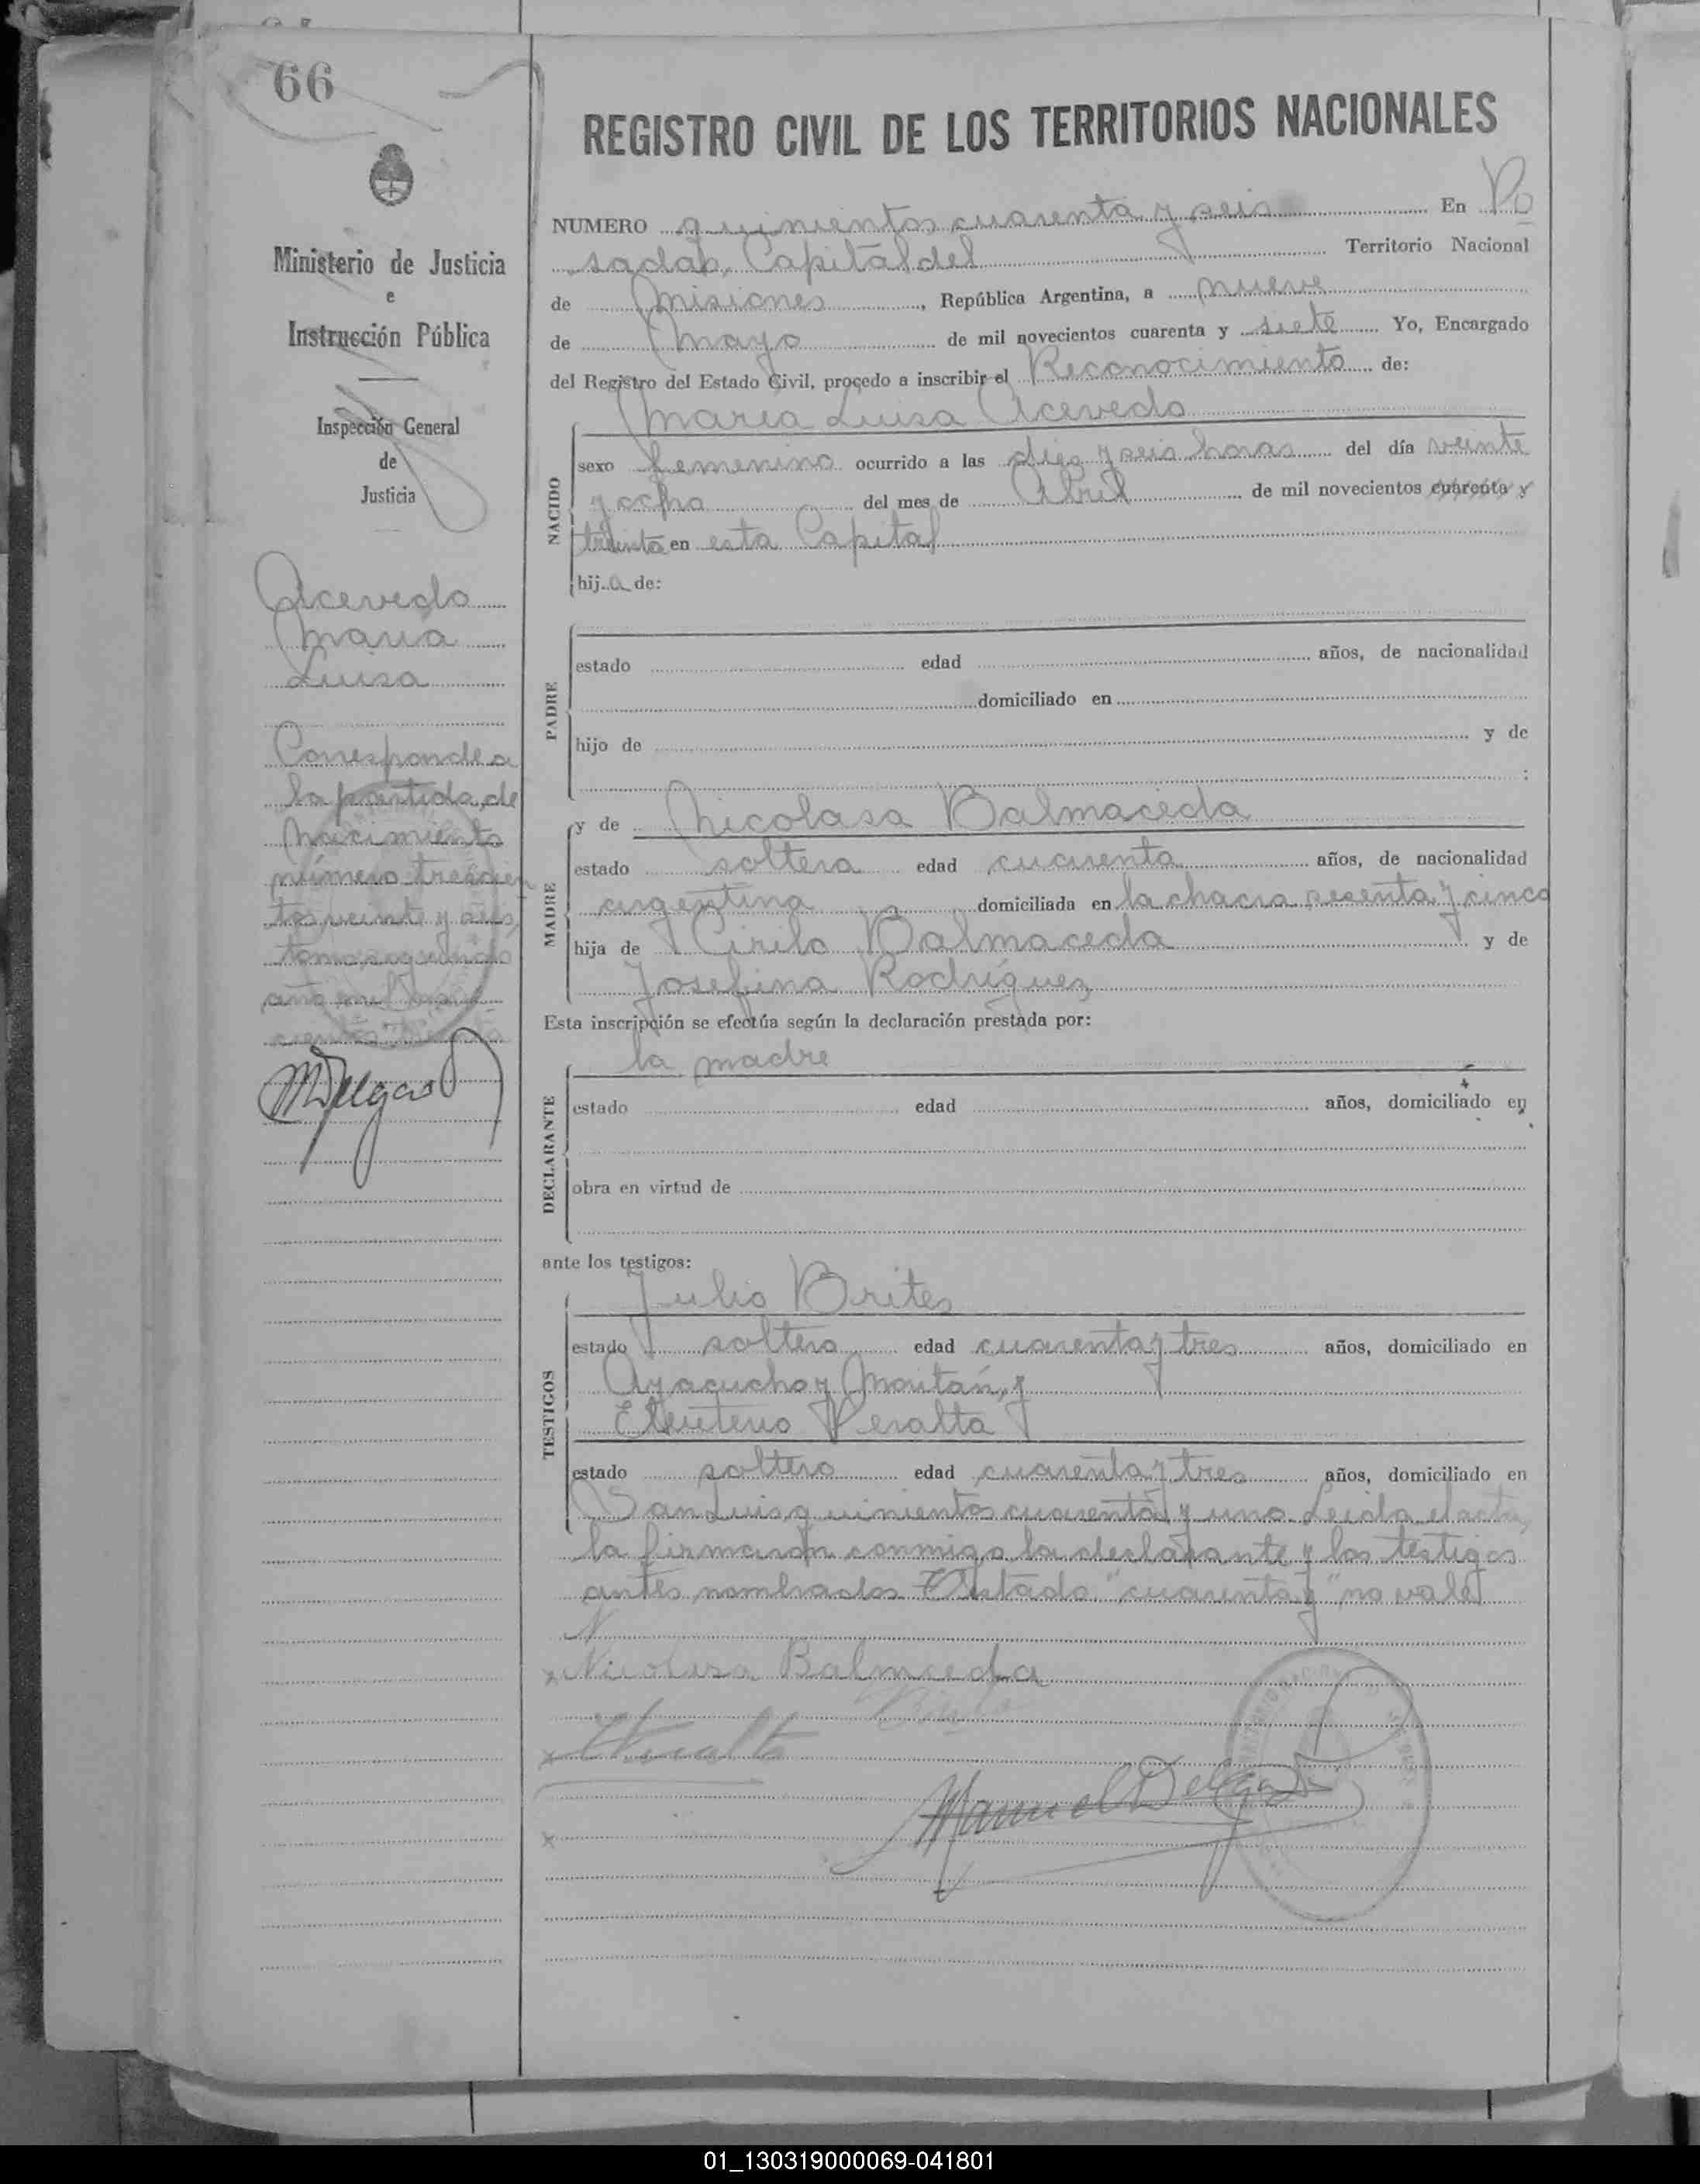 66
Ministerio de Justicia
e
Instrucción Pública
Inspección General
de
Justicia
Acevedo
María
Luisa
Corresponde a
la partida de
nacimiento
número trescien
tos veinte y seis,
tomo segundo
año mil nove
cientos treinta
MDelgado
REGISTRO CIVIL DE LOS TERRITORIOS NACIONALES
NUMERO quinientos cuarenta y seis En Po
sadas, Capital del Territorio Nacional
de Misiones, República Argentina, a nueve
de Mayo de mil novecientos cuarenta y siete Yo, Encargado
del Registro del Estado Civil, procedo a inscribir el Reconocimiento de:
María Luisa Acevedo
NACIDO
sexo femenino ocurrido a las diez y seis horas del día veinte
y ocho del mes de Abril de mil novecientos cuarenta y
treinta en esta Capital
hija de:
PADRE
estado edad años, de nacionalidad
domiciliado en
hijo de y de
;
MADRE
y de Nicolasa Balmaceda
estado soltera edad cuarenta años, de nacionalidad
argentina domiciliada en la chacra sesenta y cinco
hija de Cirilo Balmaceda y de
Josefina Rodríguez
Esta inscripción se efectúa según la declaración prestada por:
la madre
DECLARANTE
estado edad años, domiciliado en
obra en virtud de
ante los testigos:
TESTIGOS
Julio Brites
estado soltero edad cuarenta y tres años, domiciliado en
Ayacucho y Moritán, y
Eleuterio Peralta
estado soltero edad cuarenta y tres años, domiciliado en
San Luis quinientos cuarenta y uno. Leída el acta,
la firmaron conmigo la declarante y los testigos
antes nombrados. Testado "cuarenta y" no vale
x Nicolasa Balmaceda
x EPeralta
x
Manuel Delgado
01_130319000069-041801